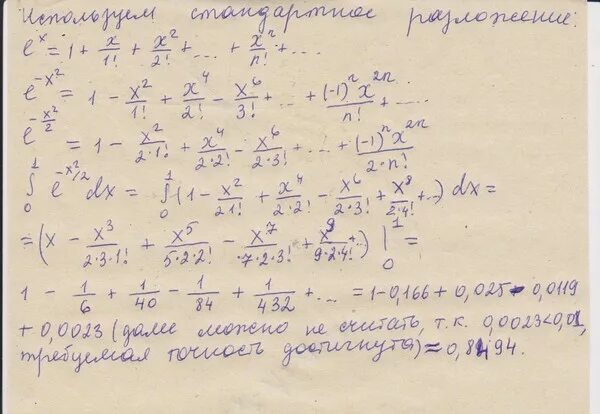 Используем стандартное разложение:
e^x = 1 + x/1! + x²/2! + ... + xⁿ/n! + ...
e^(-x²) = 1 - x²/1! + x⁴/2! - x⁶/3! + ... + (-1)ⁿx²ⁿ/n! + ....
e^(-x²/2) = 1 - x²/(2·1!) + x⁴/(2·2!) - x⁶/(2·3!) + ... + (-1)ⁿx²ⁿ/(2·n!)
∫₀¹ e^(-x²/2) dx = ∫₀¹ (1 - x²/(21!) + x⁴/(2·2!) - x⁶/(2·3!) + x⁸/(2·4!) + ...) dx =
= (x - x³/(2·3·1!) + x⁵/(5·2·2!) - x⁷/(·7·2·3!) + x⁹/(9·2·4!) + ...) |₀¹ =
1 - 1/6 + 1/40 - 1/84 + 1/432 + ... = 1-0,166 + 0,025 - 0,0119
+ 0,0023 (далее можно не считать, т.к. 0,0023<0,01,
требуемая точность достигнута) = 0,8494.